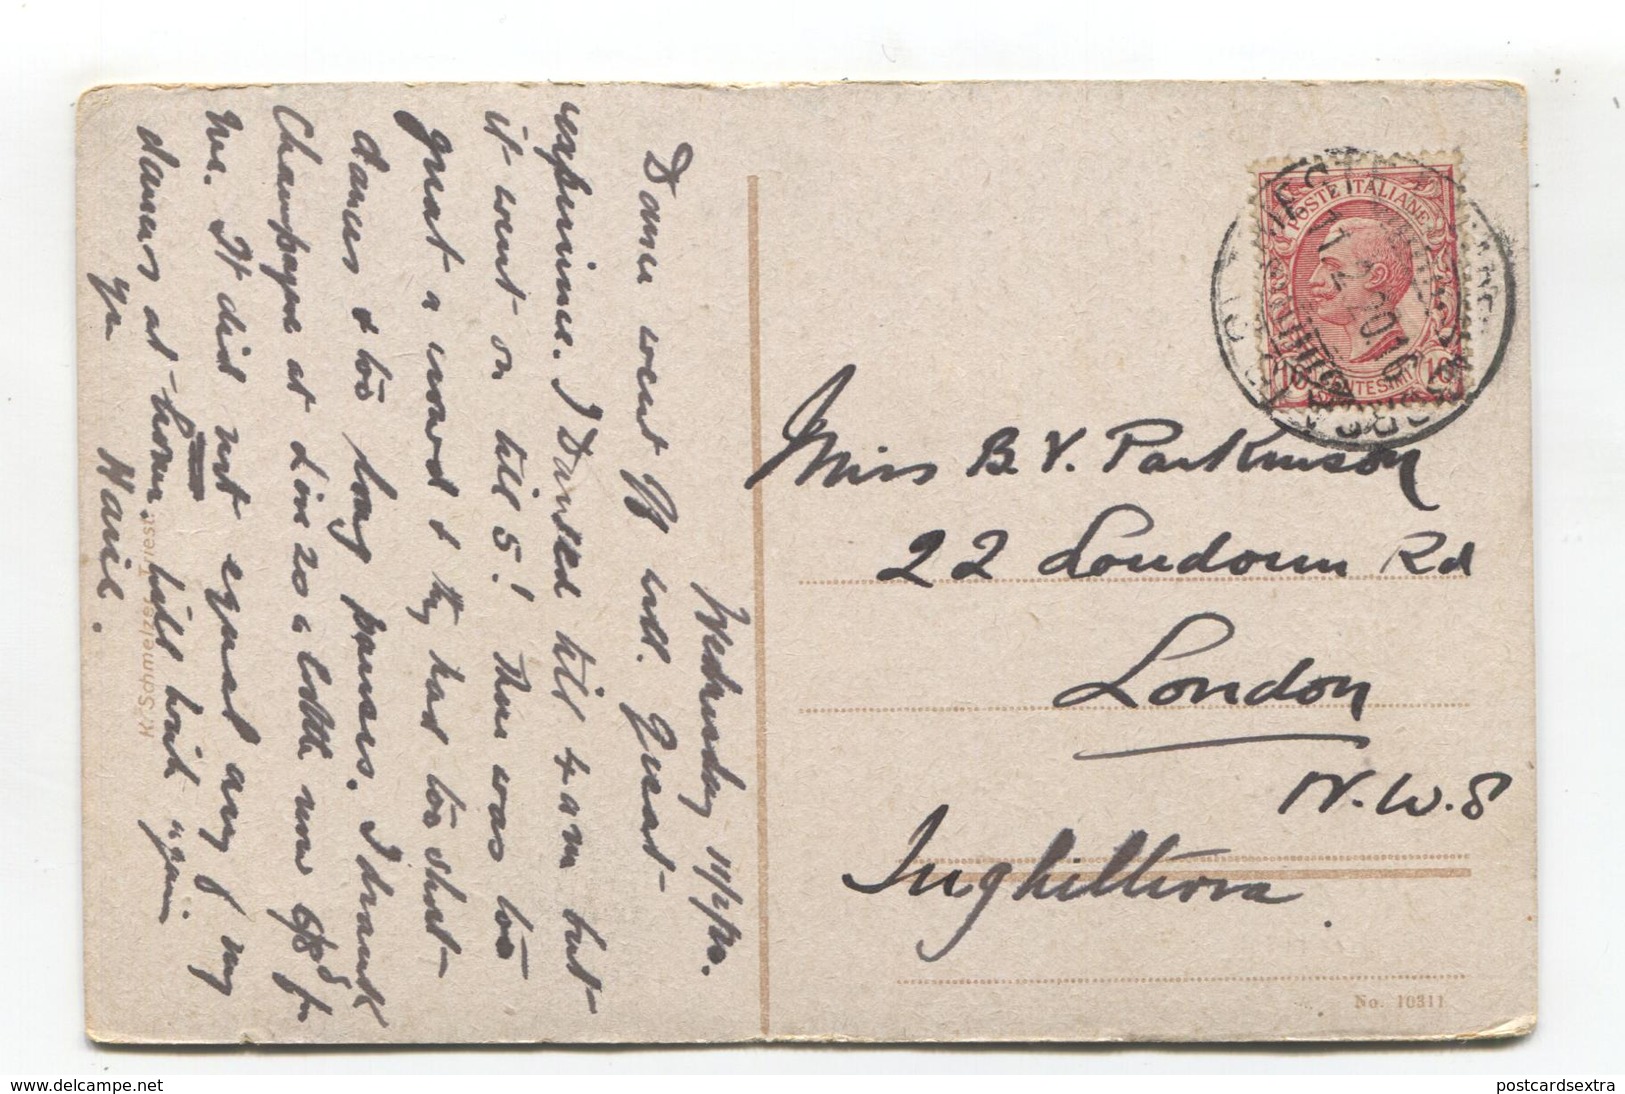 Wednesday 11/2/20.
Dance went off well. Great
experience. I Danced till 4 am but
it went on till 5! There was too
great a crowd & they had too short
dances & too long pauses. I drank
Champagne at Lire 20 a bottle now 6/8d for
me. It did not equal any of my
dances at home. Will write again.
Yr
K. Schmelzer, Triest
Miss B. V. Parkinson
22 Loudoun Rd
London
N.W.8
Inghilterra.
POSTE ITALIANE
10 CENTESIMI 10
No. 10311
www.delcampe.net
postcardsextra